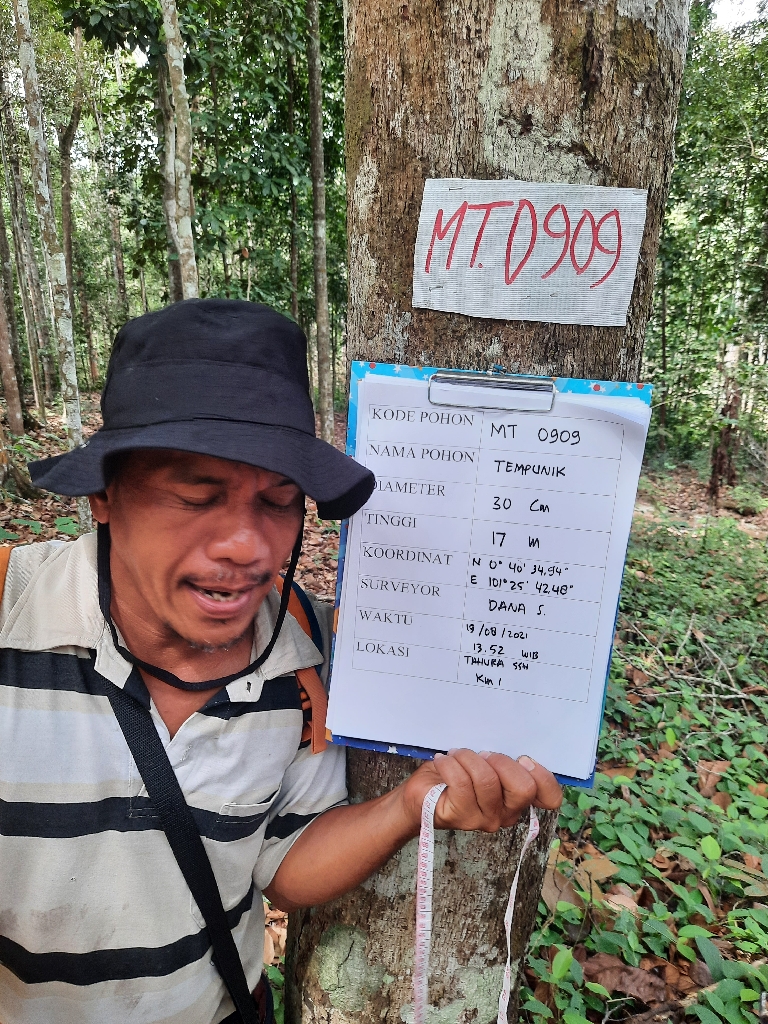 MT.0909
KODE POHON MT 0909
NAMA POHON TEMPUNIK
DIAMETER 30 Cm
TINGGI 17 m
KOORDINAT N 0° 40' 34,94"
E 101° 25' 42,48"
SURVEYOR DANA S.
WAKTU 18/08/2021
13.52 WIB
LOKASI TAHURA SSH
Km 1